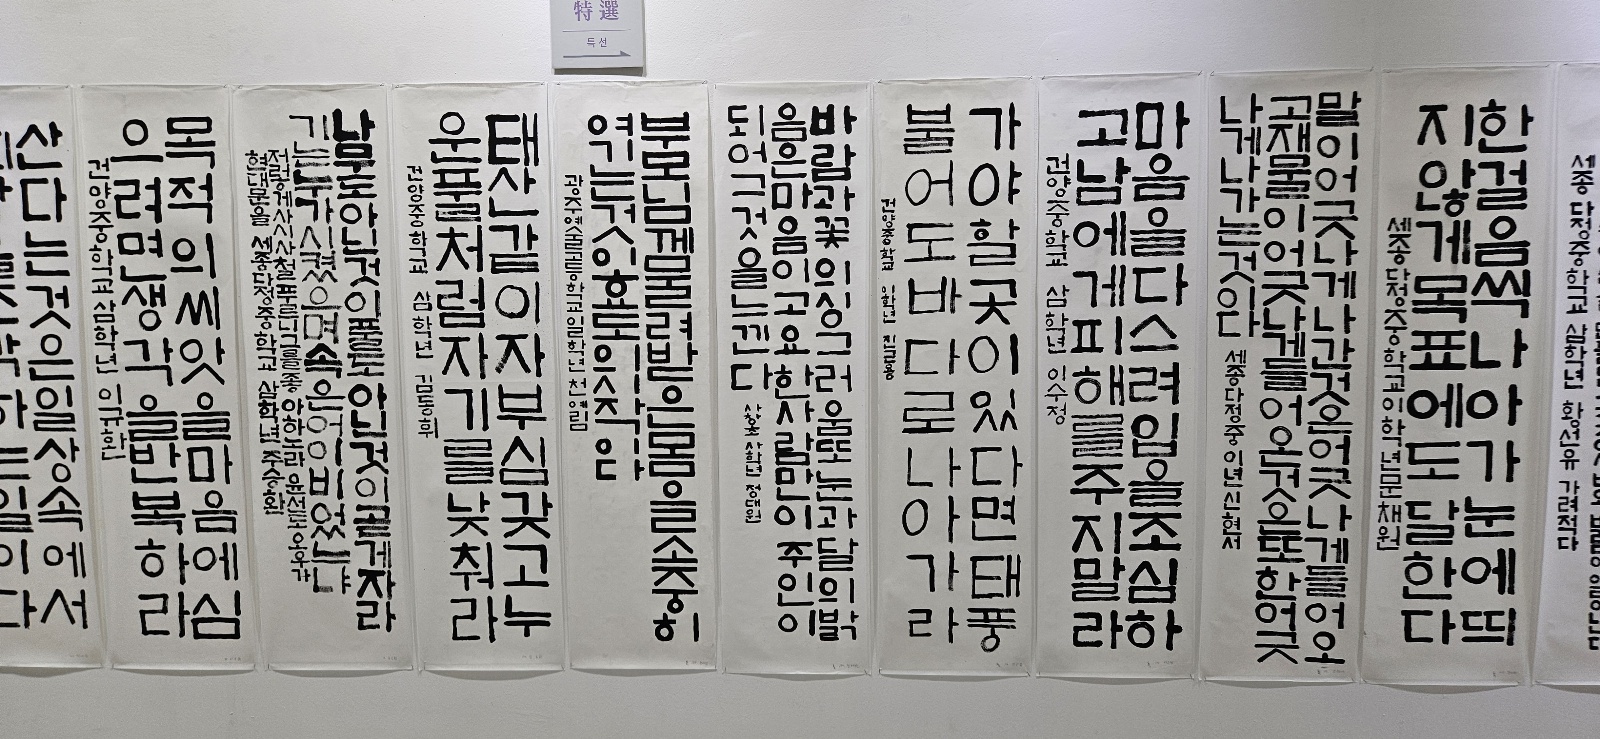 特選
특선
산다는것은일상속에서
목적의씨앗을마음에심
으려면생각을반복하라
건양중학교 삼학년 이규환
남도아닌것이풀도 아닌것이곧게자라
기는누가시켰으며속은어이비었느냐
저렇게사시사철푸르니그를좋아하노라 윤선도 오우가
현대문을 세종다정중학교 삼학년 주승환
태산같이자부심갖고누
운풀처럼자기를낮춰라
건양중학교 삼학년 김동휘
부모님께물려받은몸을소중히
여기는것이효도의시작이다
광주예술고등학교일학년 천예림
바람과꽃의싱그러움또눈과달의밝
음은마음이고요한사람만이주인이
되어그것을느낀다
사학년 정대원
가야할곳이있다면태풍
불어도바다로나아가라
건양중학교 일학년
마음을다스려입을조심하
고남에게피해를주지말라
건양중학교 삼학년 이수정
말이어긋나게나간것은어긋나게들어오
고재물이어긋나게들어온것은또한어긋
나게나가는것이다
세종다정중이년신현서
한걸음씩나아가눈에띄
지않게목표에도달한다
세종다정중학교이학년문채원
세종다정중학교 삼학년 황선유 가려적다